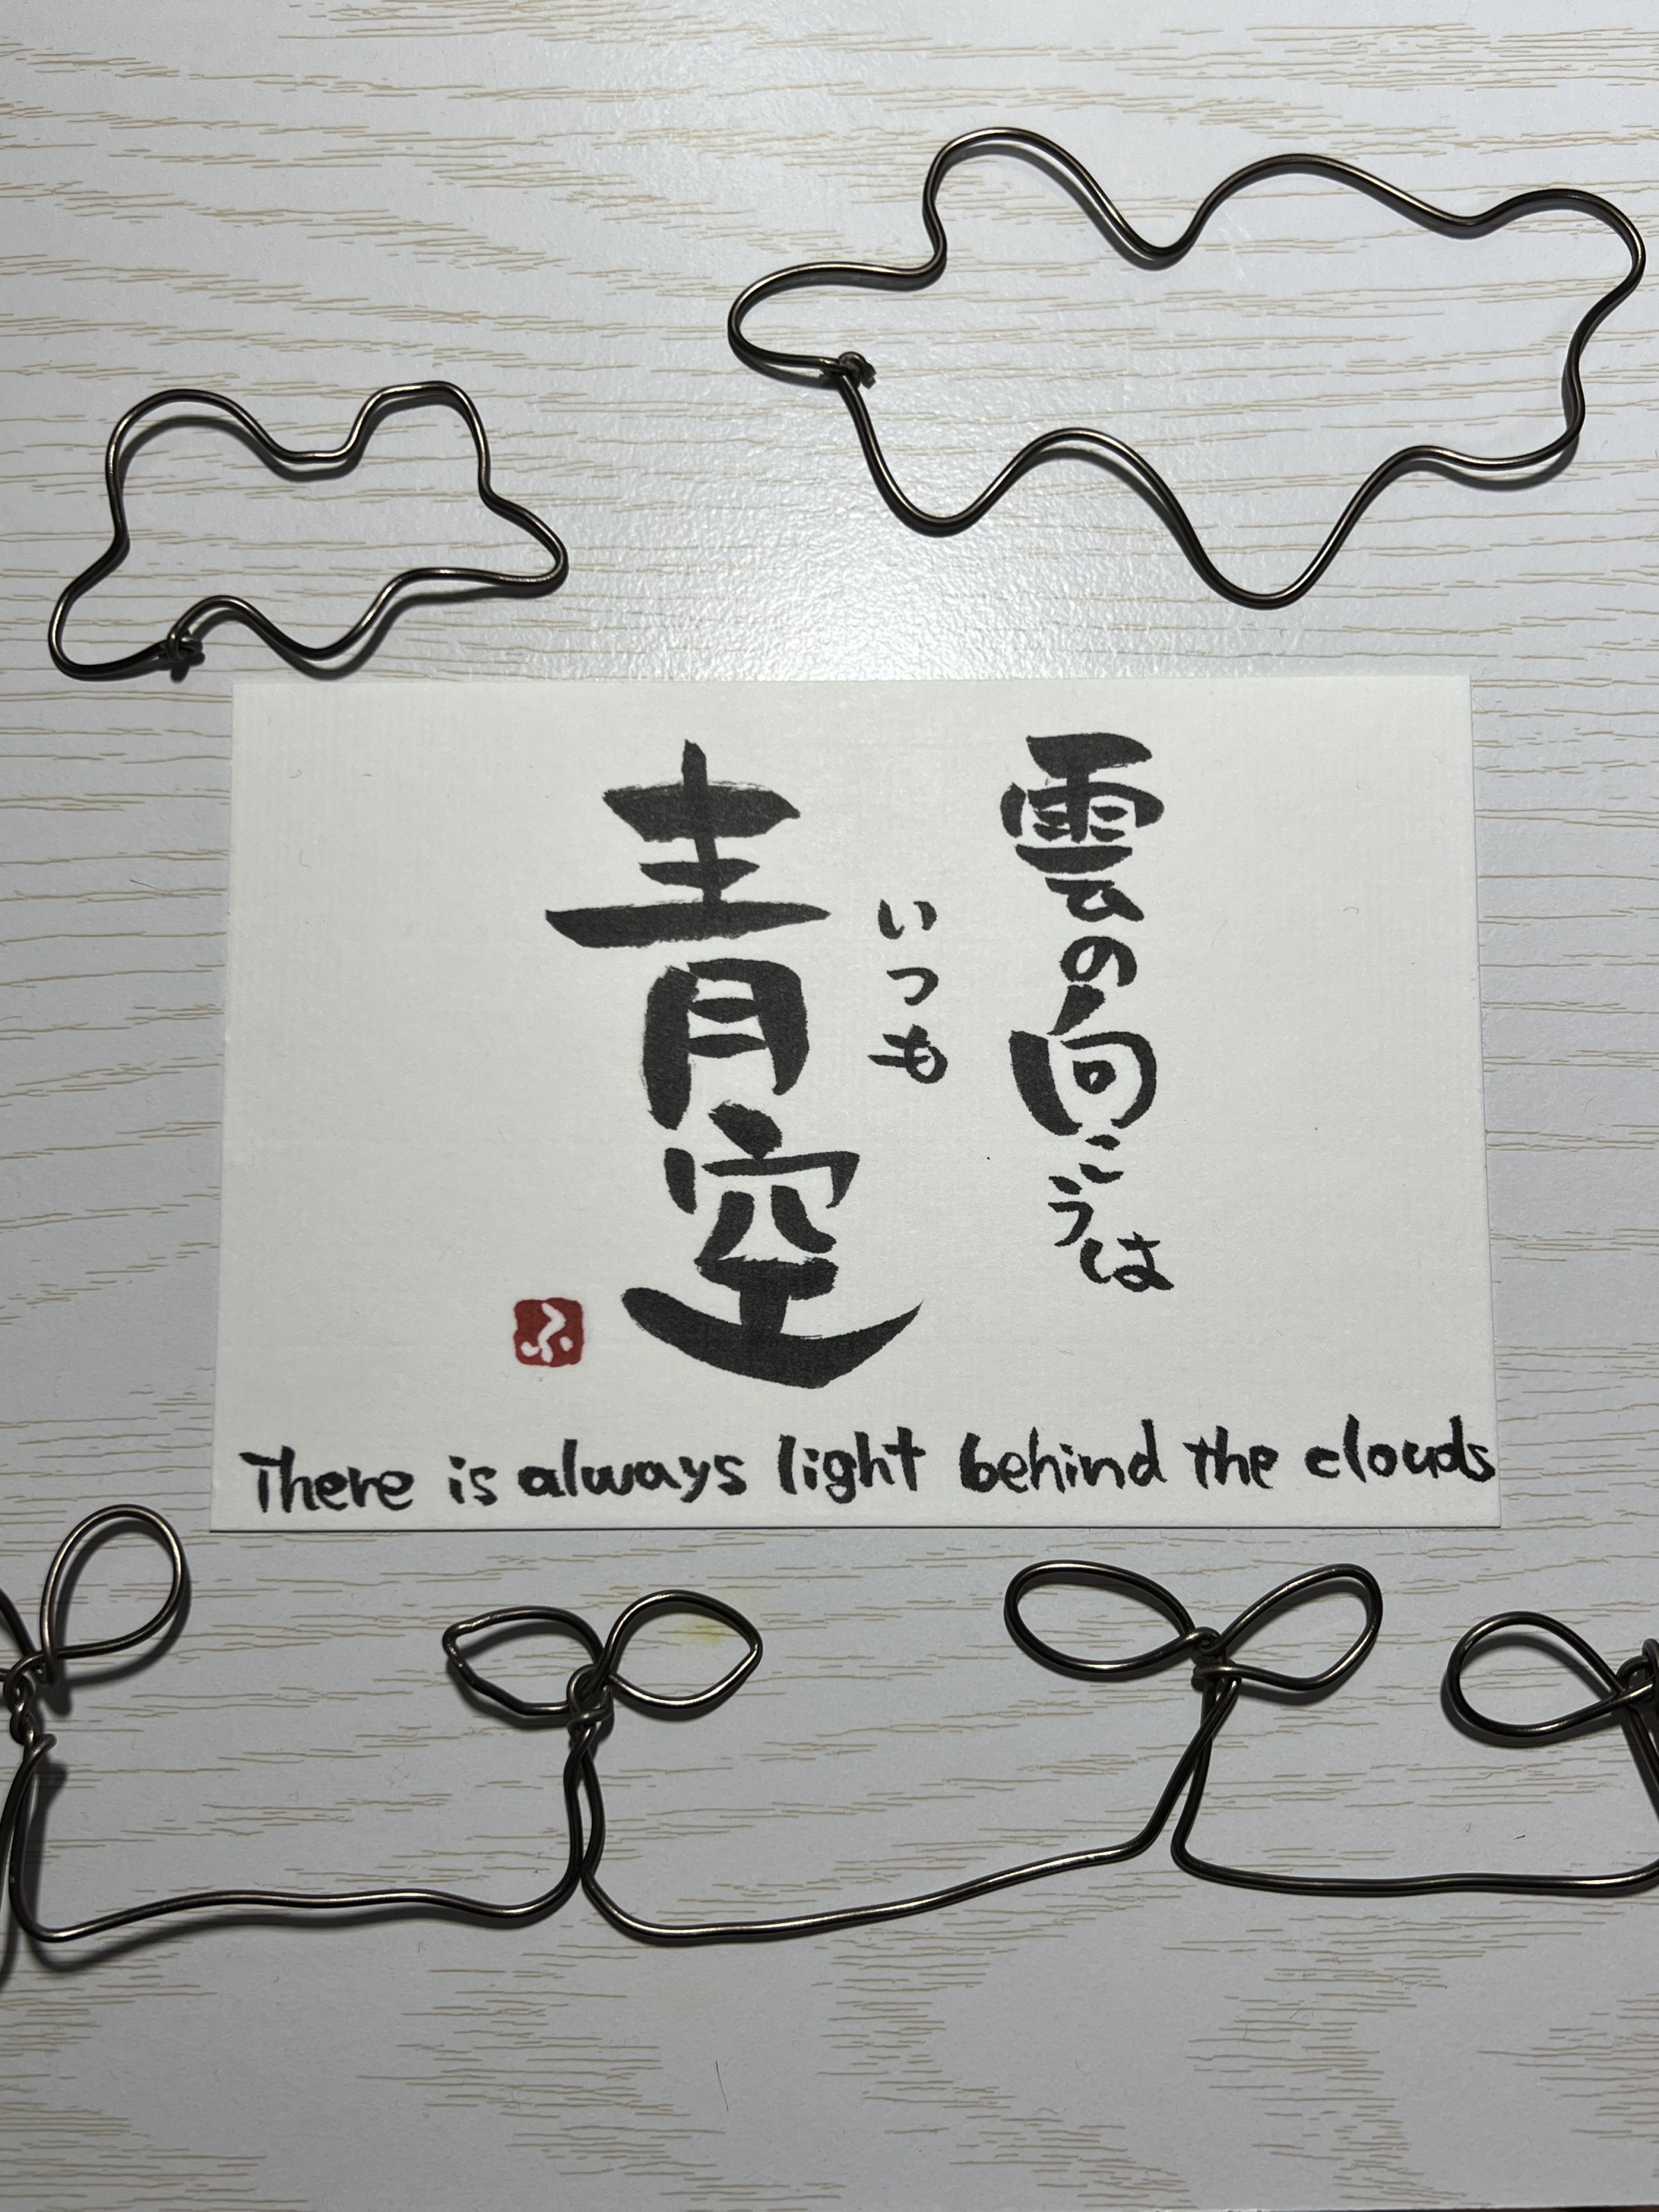 雲の向こうは
いつも
青空
ふ
There is always light behind the clouds